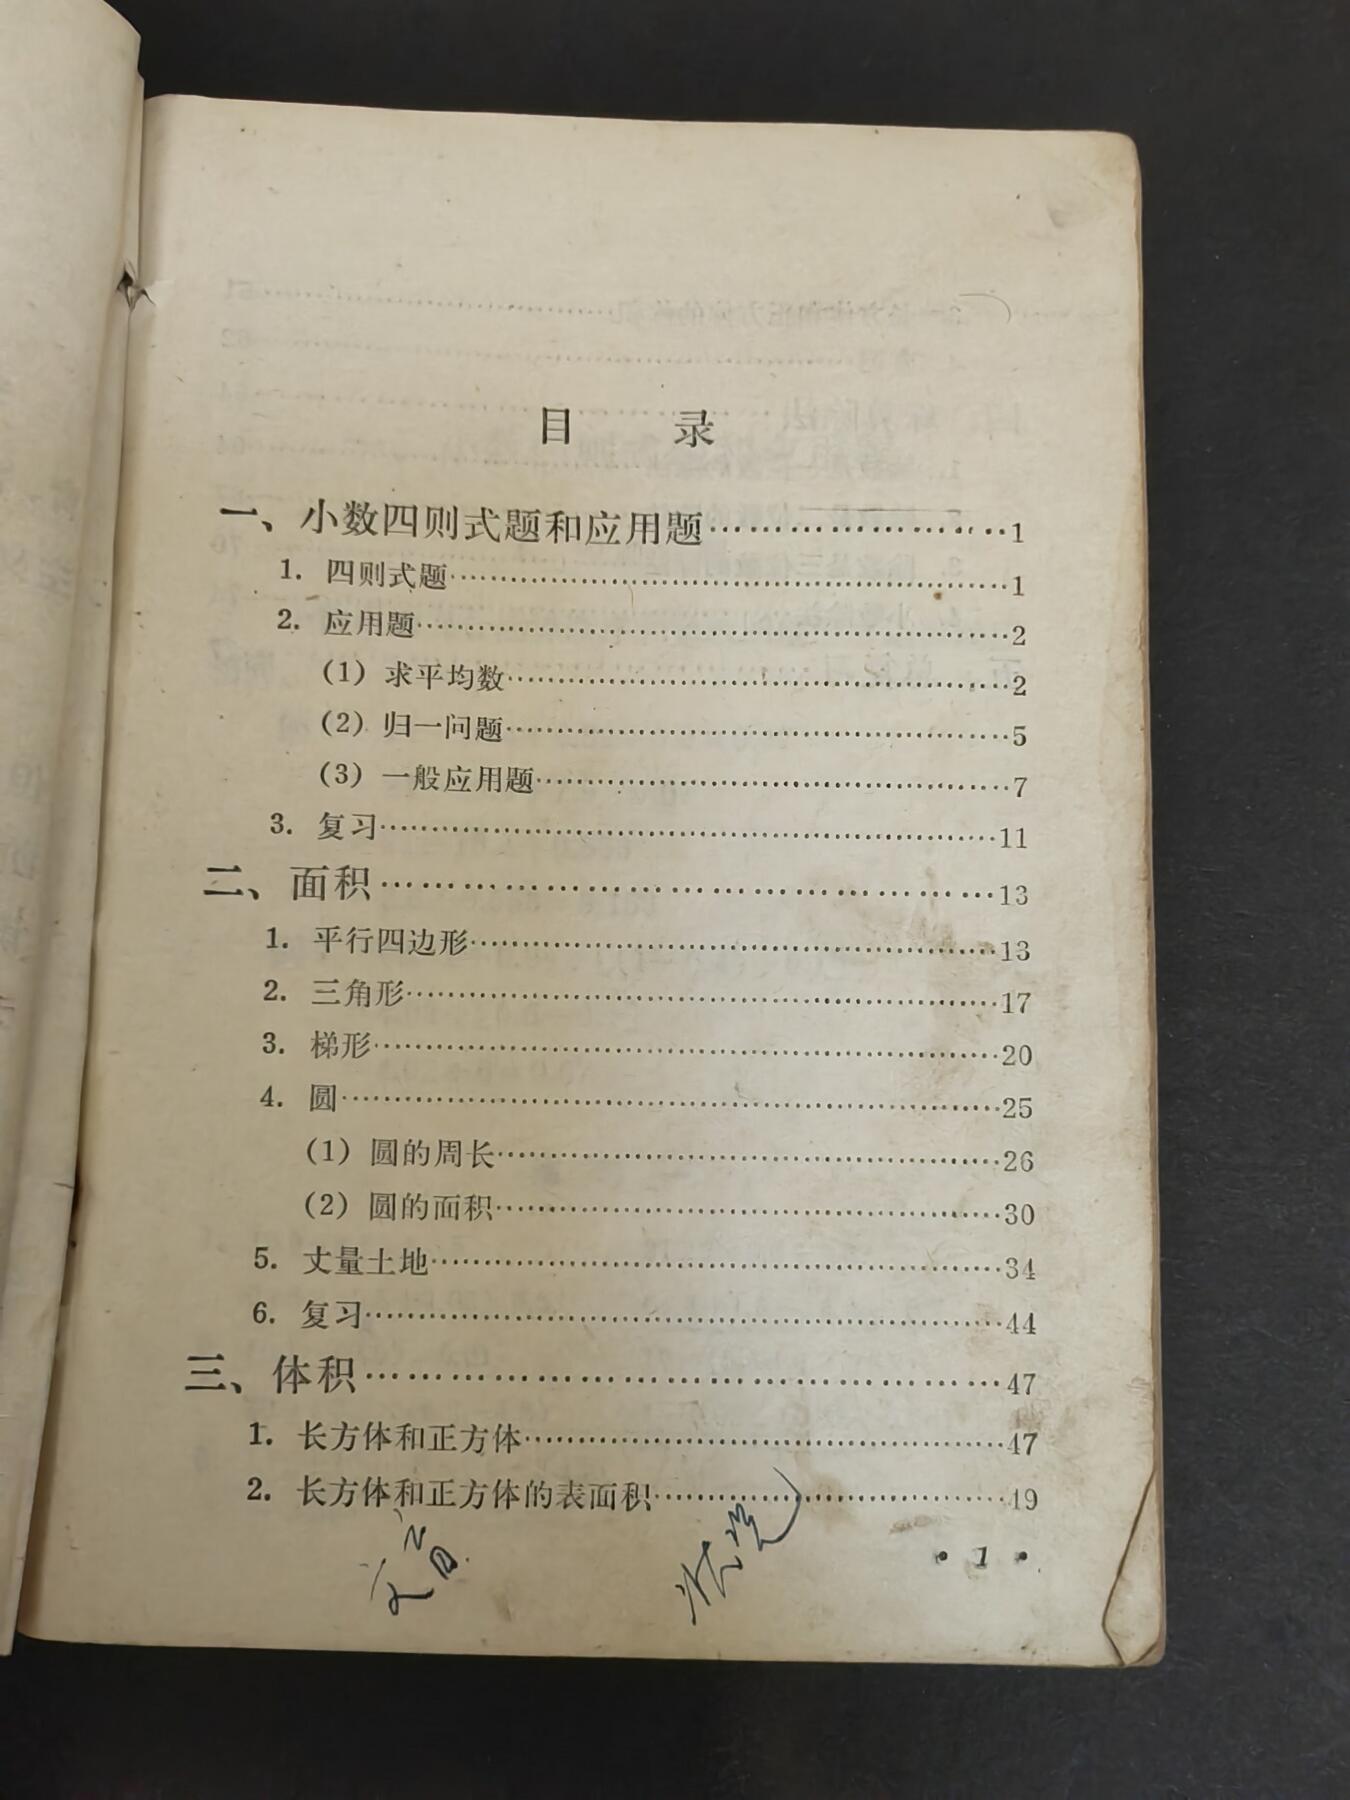 目 录
一、小数四则式题和应用题……………………1
1. 四则式题……………………1
2. 应用题……………………2
(1) 求平均数……………………2
(2) 归一问题……………………5
(3) 一般应用题……………………7
3. 复习……………………11
二、面积……………………13
1. 平行四边形……………………13
2. 三角形……………………17
3. 梯形……………………20
4. 圆……………………25
(1) 圆的周长……………………26
(2) 圆的面积……………………30
5. 丈量土地……………………34
6. 复习……………………44
三、体积……………………47
1. 长方体和正方体……………………47
2. 长方体和正方体的表面积……………………49
• 1 •